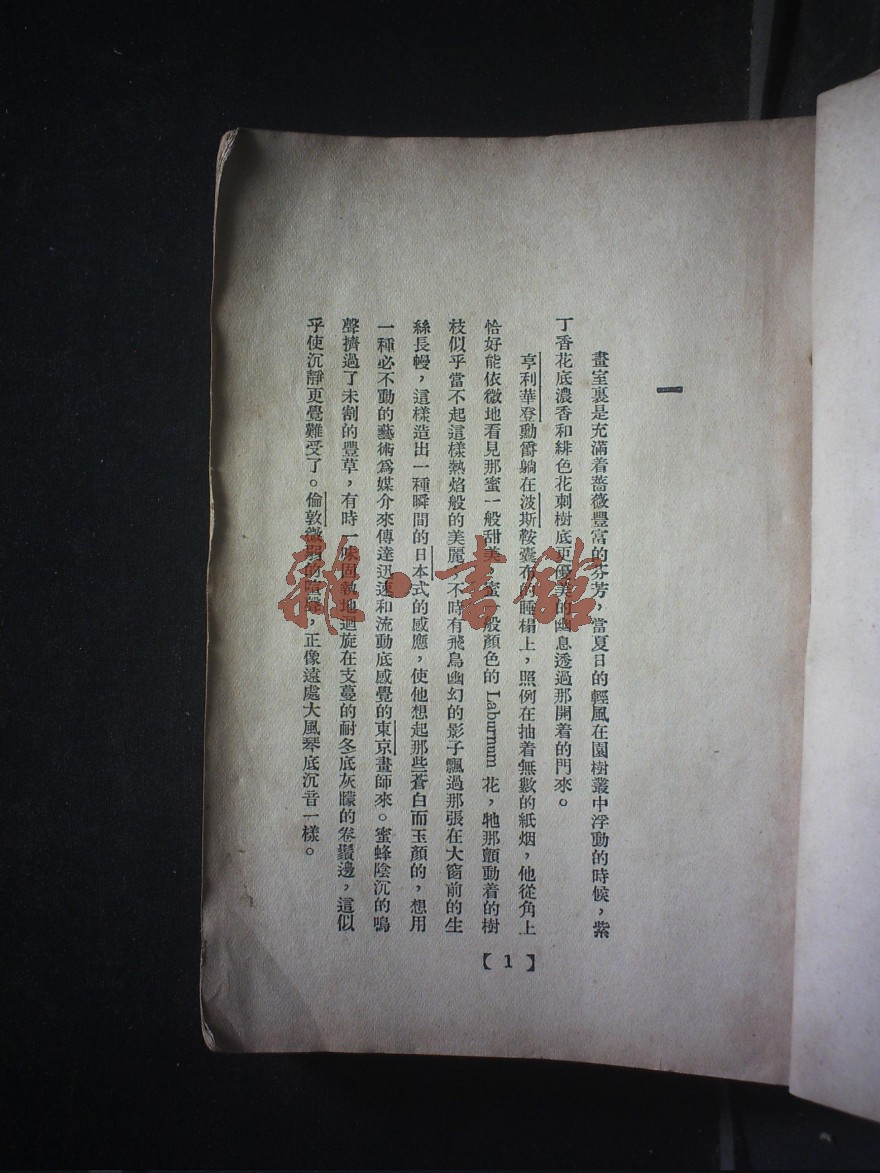 一
畫室裏是充滿着薔薇豐富的芬芳，當夏日的輕風在園樹叢中浮動的時候，紫
丁香花底濃香和緋色花刺樹底更優美的幽息透過那開着的門來。
亨利華登勳爵躺在波斯鞍囊布的睡榻上，照例在抽着無數的紙烟，他從角上
恰好能依微地看見那蜜一般甜美，蜜一般顏色的 Laburnum 花，牠那顫動着的樹
枝似乎當不起這樣熱焰般的美麗；不時有飛鳥幽幻的影子飄過那張在大窗前的生
絲長幔，這樣造出一種瞬間的日本式的感應，使他想起那些蒼白而玉顏的，想用
一種必不動的藝術爲媒介來傳達迅速和流動底感覺的東京畫師來。蜜蜂陰沉的嗚
聲擠過了未割的豐草，有時一味固執地迴旋在支蔓的耐冬底灰朦的卷鬚邊，這似
乎使沉靜更覺難受了。倫敦微弱的喧聲，正像遠處大風琴底沉音一樣。
【1】
雜·書館